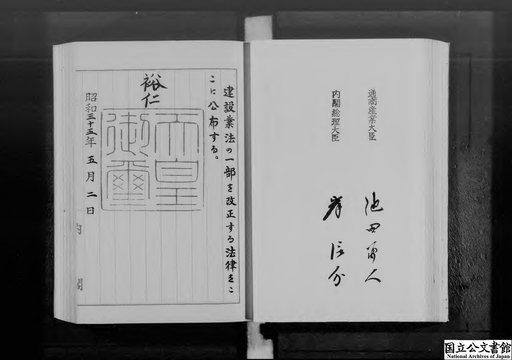 建設業法の一部を改正する法律をこ
こに公布する。
裕仁
天皇
御璽
昭和三十五年五月二日
内閣
通商産業大臣
池田勇人
内閣総理大臣
岸信介
国立公文書館
National Archives of Japan